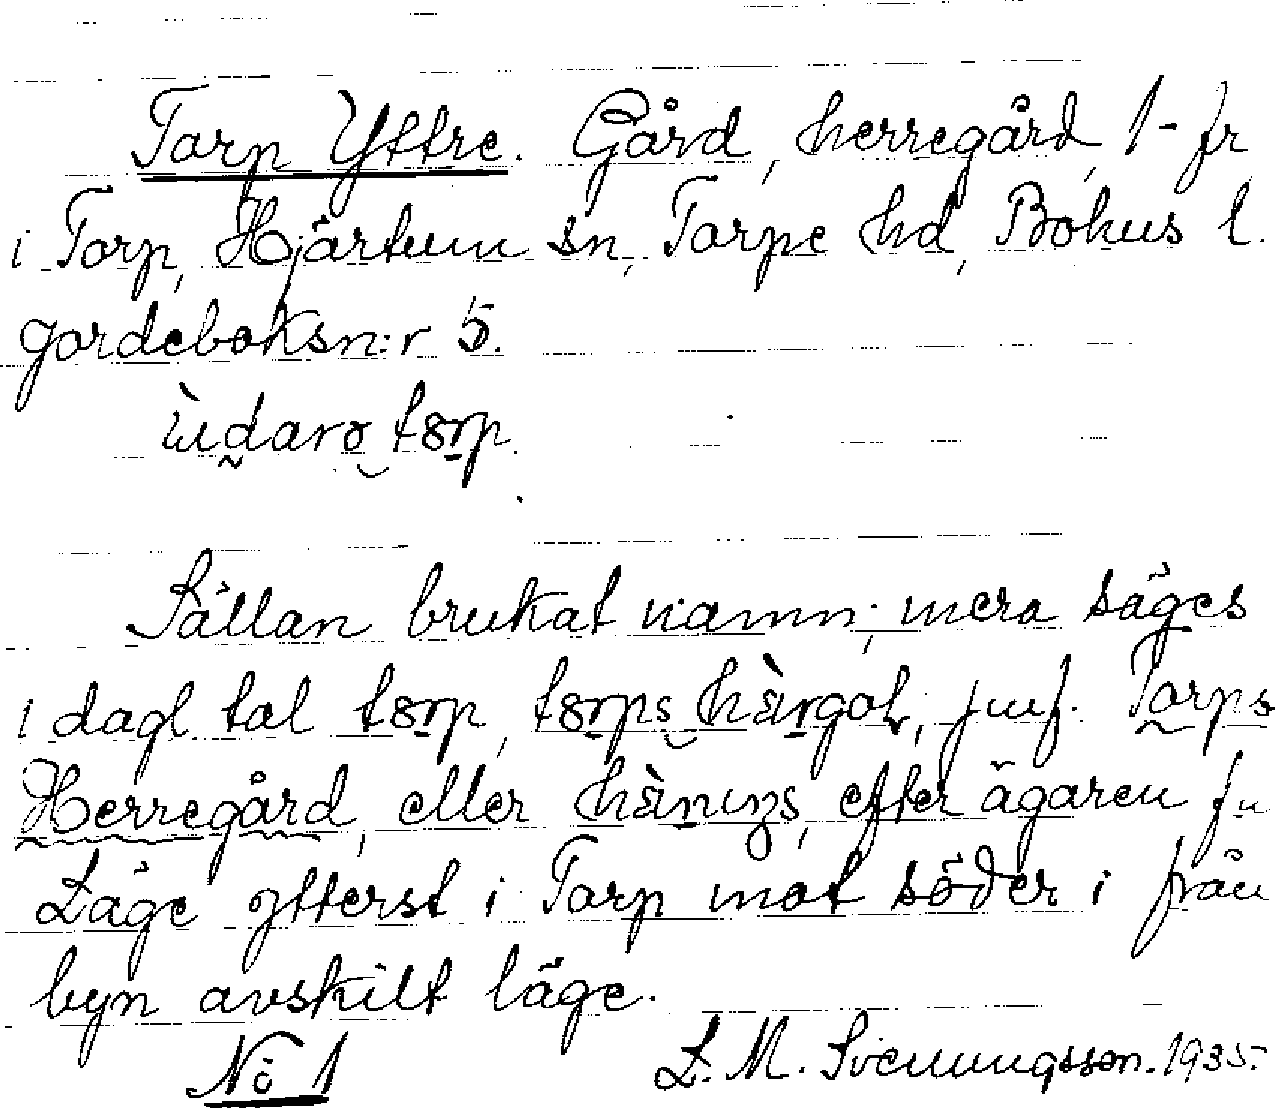 Torp Yttre. Gård, herregård, 1- fr
i Torp, Hjärtum sn, Torpe hd, Bohus l.
Jordeboksn:r 5.
torp.
Sällan brukat namn; mera säges
i dagl tal torp, torps hàrgol, jmf. Torps
Herregård, eller efter ägaren fu
Läge ytterst i Torp mot söder i från
byn avskilt läge.
No 1 L. M. Svenungsson. 1935.